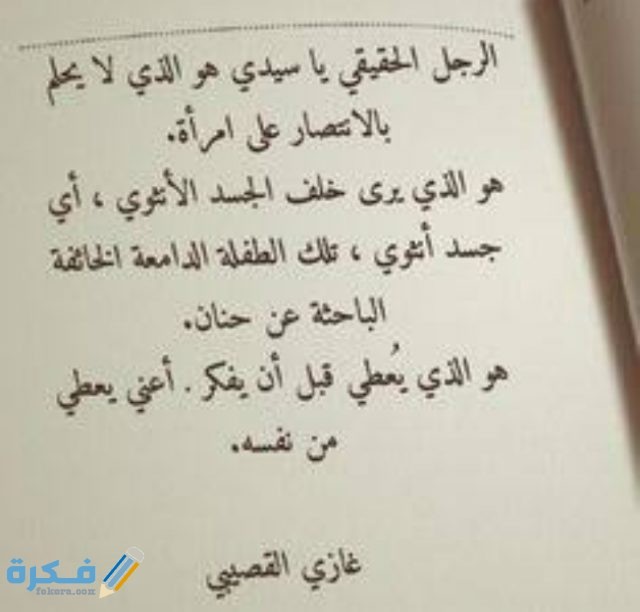 الرجل الحقيقي يا سيدي هو الذي لا يحلم
بالانتصار على امرأة.
هو الذي يرى خلف الجسد الأنثوي ، أي
جسد أنثوي ، تلك الطفلة الدامعة الخائفة
الباحثة عن حنان.
هو الذي يُعطي قبل أن يفكر . أعني يعطي
من نفسه.
غازي القصيبي
فكرة
fekera.com